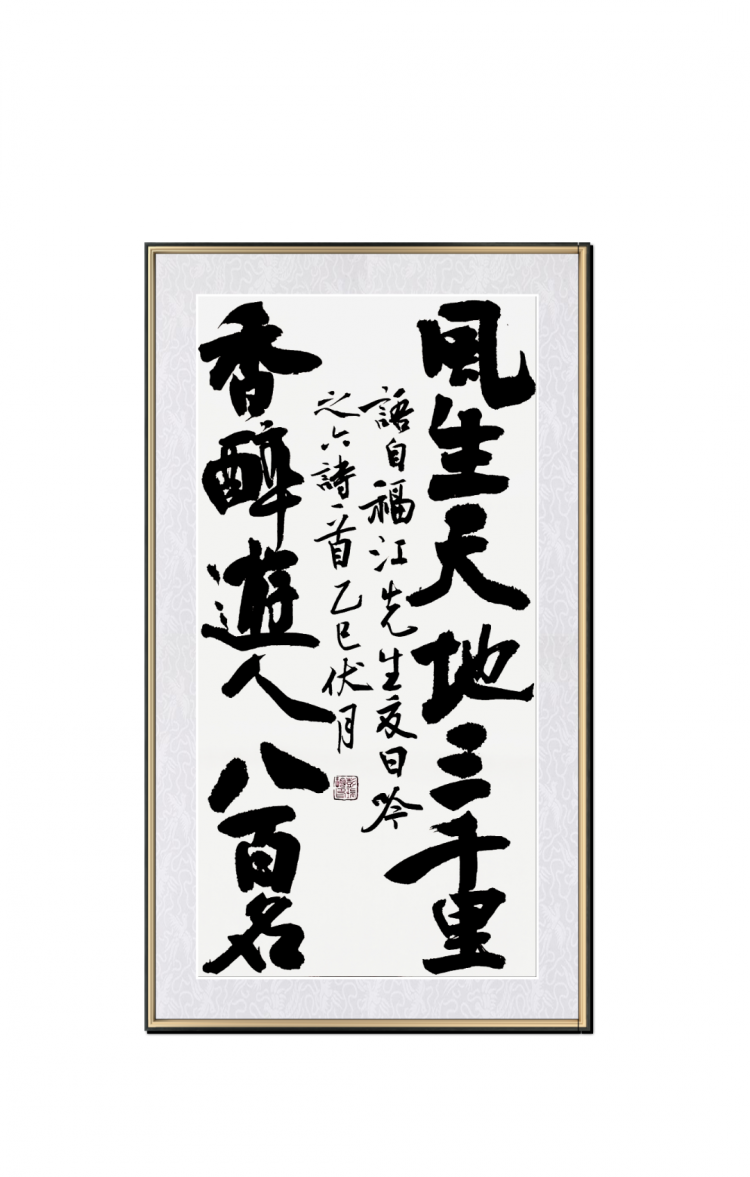 風生天地三千里
語自福江先生夜日吟
之六詩一首乙巳伏月
香醉遊人八百名